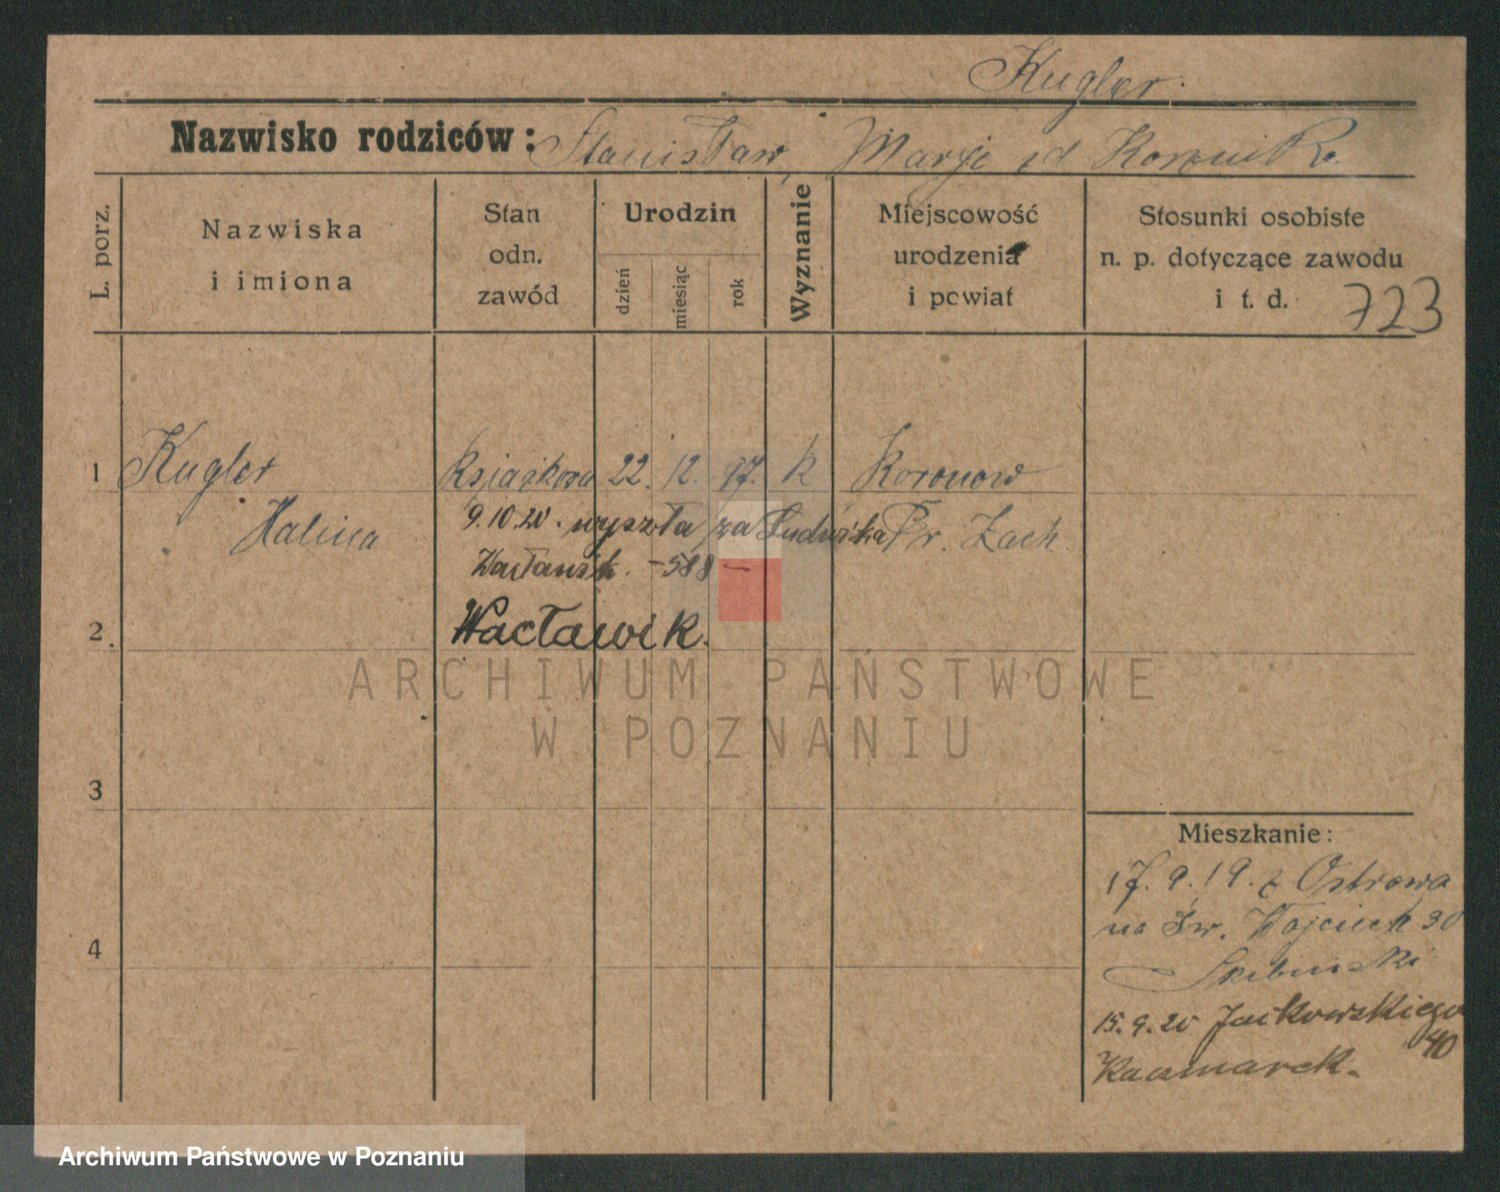 Kugler.
Nazwisko rodziców: Stanisław, Marje
L. porz.
Nazwiska
i imiona
Stan
odn.
zawód
Urodzin
dzień
miesiąc
rok
Wyznanie
Miejscowość
urodzenia
i powiat
Stosunki osobiste
n. p. dotyczące zawodu
i t. d.
723
1 Kugler Książkowa 22. 12. 97. k Koronow
Halina 9.10.20. wyszła za Ludwika Pr. Zach
- 588 -
2. Wacławik.
ARCHIWUM PAŃSTWOWE
W POZNANIU
3
Mieszkanie:
17. 9. 19. z Ostrowa
na Św. Wojciech 30
4 Skibiński
15. 9. 20 Jackowskiego
40
Kaczmarek.
Archiwum Państwowe w Poznaniu